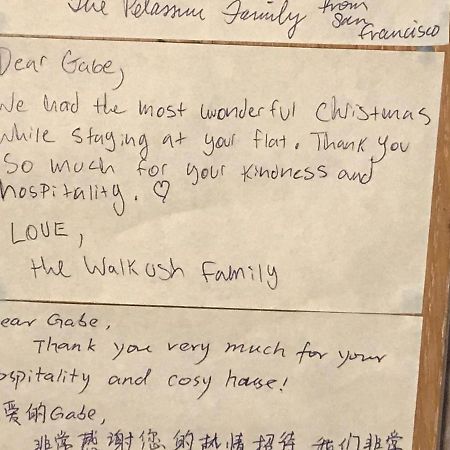 The Pelassur Family from
San
Francisco
Dear Gabe,
We had the most wonderful Chistmas
while staying at your flat. Thank you
so much for your kindness and
hospitality. ♡
LOVE,
the Walkush Family
ear Gabe,
Thank you very much for your
ospitality and cosy house!
爱的Gabe,
非常感谢您的热情招待 我们非常